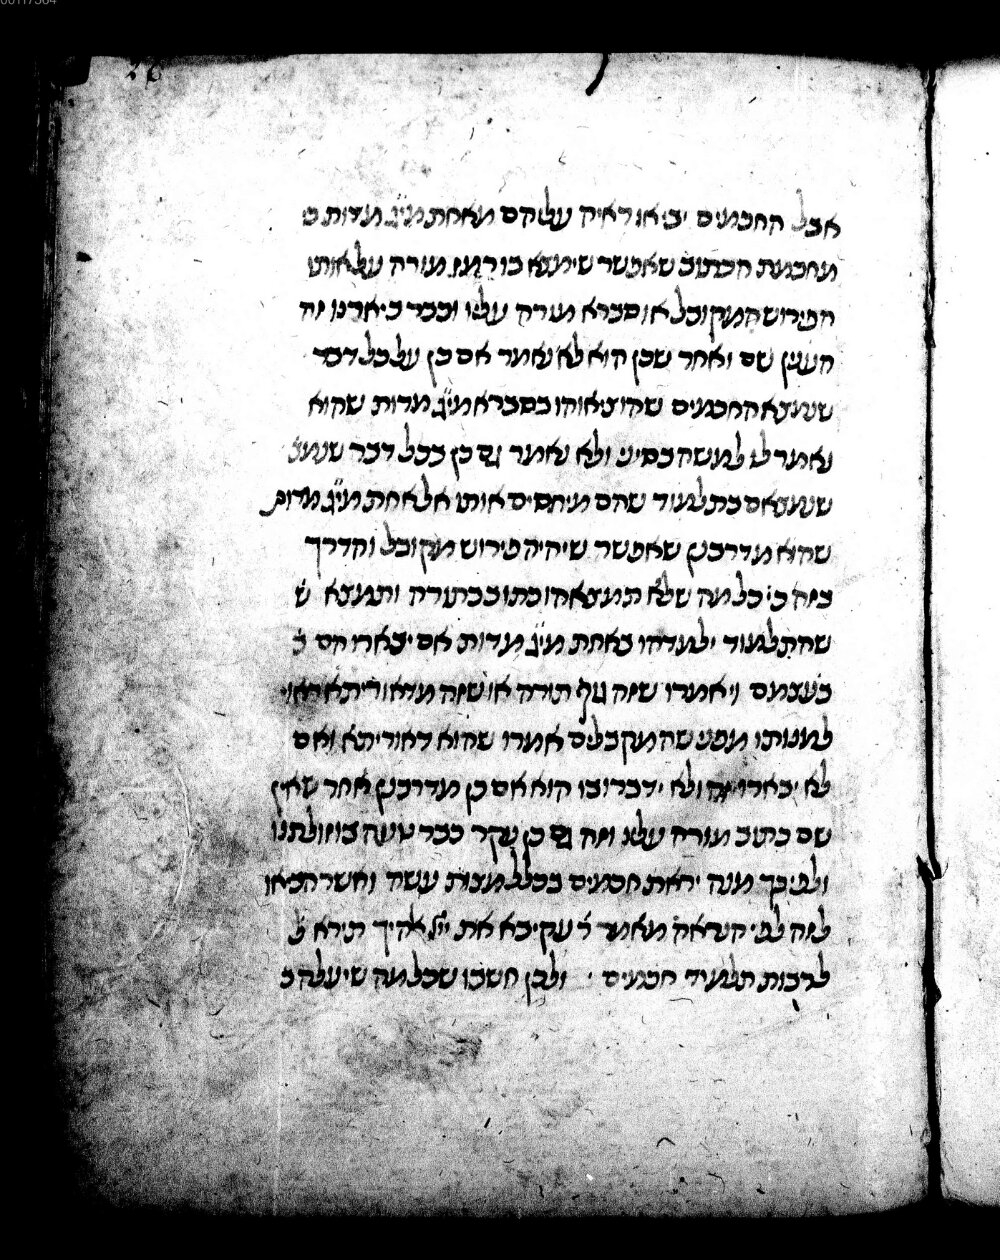 אבל החכמים יביאו ראיה עליהם מאחת מי״ג מדות כי
מחכמת הכתוב שאפשר שימצא בו רמז מורה על אותו
הפירוש המקובל או סברא מורה עליו וכבר ביארנו זה
הענין שם ואחר שכן הוא לא נאמר אם כן על כל דבר
שנמצא החכמים שהוציאוהו בסברא מי״ג מדות שהוא
נאמר לו למשה בסיני ולא נאמר גם כן בכל דבר שנמצ
שנמצאם בתלמוד שהם מיחסים אותו אל אחת מי״ג מדות
שהוא מדרבנן שאפשר שיהיה פירוש מקובל והדרך
בזה כי כל מה שלא תמצאהו כתוב בתורה ותמצא ש
שהתלמוד ילמדהו באחת מי״ג מדות אם יבארו הם ב
בעצמם ויאמרו שזה גוף תורה או שזה מדאוריתא ראוי
למנותו מפני שהמקבלים אמרו שהוא דאוריתא ואם
לא יבארו זה ולא ידברו בו הוא אם כן מדרבנן אחר שאין
שם כתוב מורה עליו וזה גם כן עקר כבר טעה בו זולתנו
ולפיכך מנה יראת חכמים בכלל מצות עשה ואשר הביאו
לזה לפי הנראה מאמר ר׳ עקיבא את ייי׳ אלהיך תירא ל
לרבות תלמידי חכמים ולכן חשבו שכל מה שיעלה ב